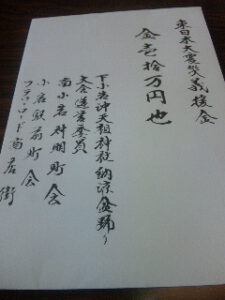 東日本大震災義援金
金壱拾万円也
下小岩沖天祖神社納涼盆踊り
大会運営委員
南小岩財明町会
小岩駅前町会
フラワーロード商店街